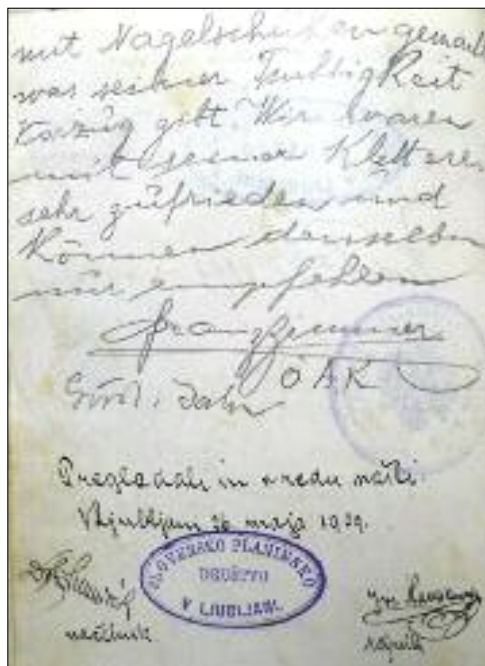 mit Nagelschuhen gemacht
was seiner
gibt. Wir waren
mit seiner Kletterei
sehr zufrieden und
können denselben
nur empfehlen
Franz Zimmer
ÖAK
Gust. Jahn
Pregledali in v redu našli.
V Ljubljani 26 maja 1929.
SLOVENSKO PLANINSKO
DRUŠTVO
V LJUBLJANI
načelnik